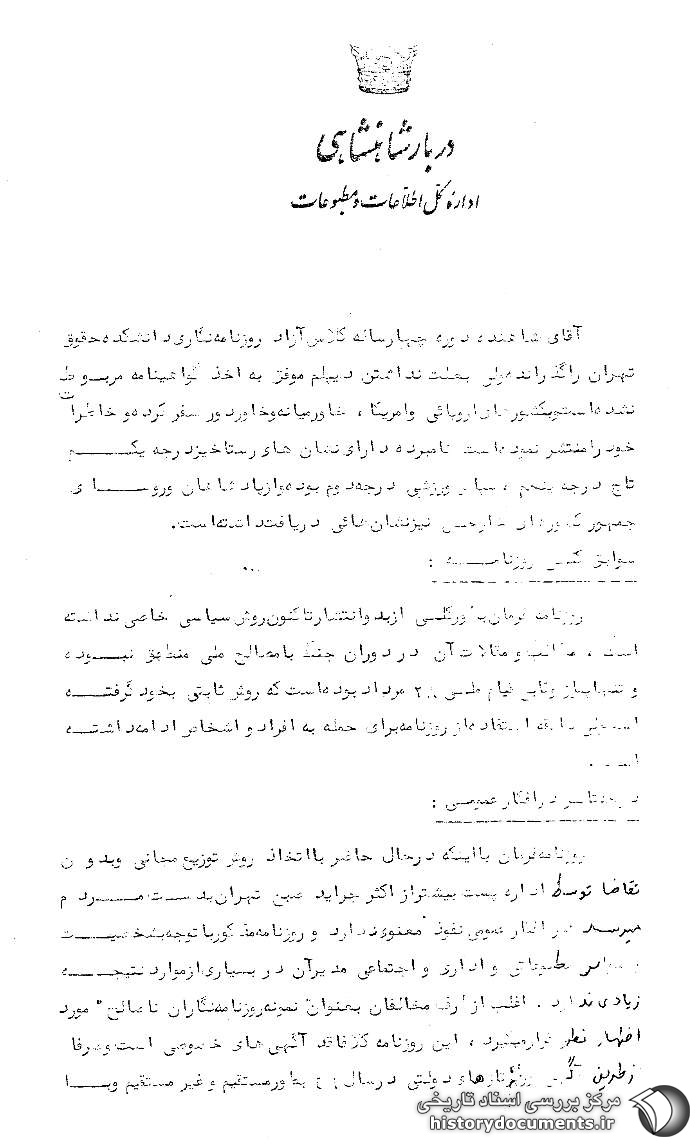 دربار شاهنشاهی
اداره کل اطلاعات و مطبوعات
آقای شاهنده دوره چهارساله کلاس آزاد روزنامه‌نگاری دانشکده حقوق
تهران را گذرانده ولی بعلت نداشتن دیپلم موفق به اخذ گواهینامه مربوطه
نشده است وبکشورهای اروپائی وامریکا ، خاورمیانه وخاوردور سفر کرده و خاطرات
خود را منتشر نموده است نامبرده دارای نشان های رستاخیز درجه یکم
تاج درجه پنجم ، سپاس ورزشی درجه دوم بوده و از پادشاهان وروسای
جمهور کشورهای خارجی نیز نشان هائی دریافت داشته است.
سوابق کلی روزنامه :
روزنامه فرمان بطورکلی از بدو انتشار تاکنون روش سیاسی خاصی نداشته
است ، مطالب و مقالات آن در دوران جنگ با مصالح ملی منطبق نبوده
و تنها پس از وقایع قیام ملی ۲۸ مرداد بوده است که روش ثابتی بخود گرفته
است ولی سابقه استفاده از روزنامه برای حمله به افراد و اشخاص ادامه داشته
است .
درجه تاثیر در افکار عمومی :
روزنامه فرمان با اینکه در حال حاضر با اتخاذ روش توزیع مجانی وبدون
تقاضا توسط اداره پست بیشتر از اکثر جراید صبح تهران بدست مردم
میرسد در افکار عمومی نفوذ معنوی ندارد و روزنامه مذکور با توجه بشخصیت
سیاسی مطبوعاتی و اداری و اجتماعی مدیر آن در بسیاری از موارد نتیجه
زیادی ندارد . اغلب از طرف مخالفان بعنوان "نمونه روزنامه‌نگاران ناصالح" مورد
اظهار نظر قرار میگیرد ، این روزنامه که فاقد آگهی های خصوصی است وصرفا
از طریق آگهی دولتی در سال بطور مستقیم و غیر مستقیم وبا
مرکز بررسی اسناد تاریخی
historydocuments.ir